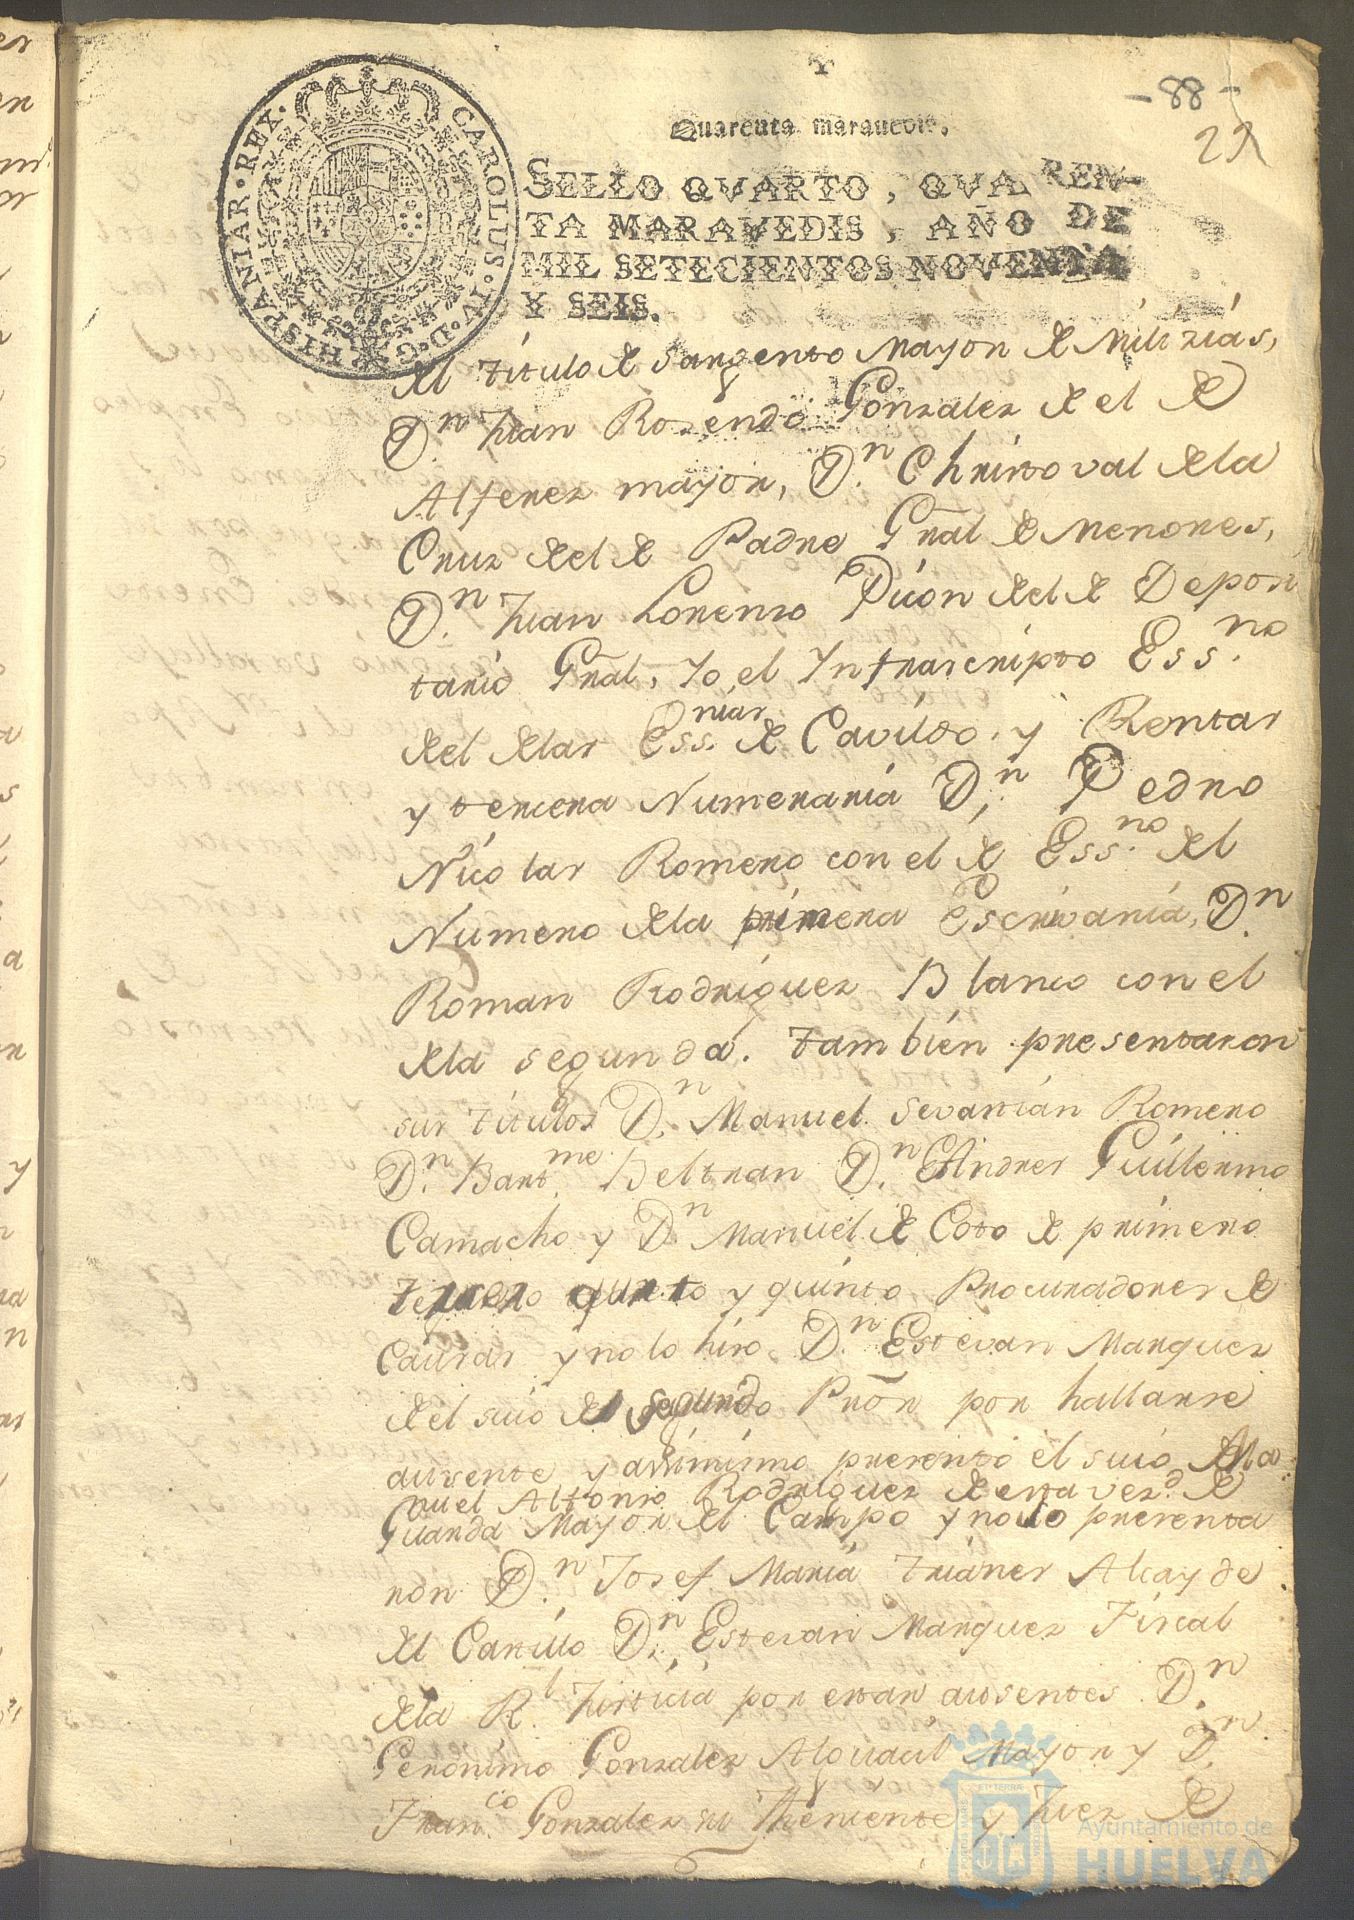 - 88 -
29
Quarenta marauedis.
SELLO QVARTO, QVAREN-
TA MARAVEDIS, AÑO DE
MIL SETECIENTOS NOVENTA
Y SEIS.
CAROLUS·IV·D·G·HISPANIAR·REX·
del titulo de Sargento Mayor de Milizias,
Dn. Juan Rosendo Gonzalez de el de
Alferez mayor, Dn. Christoval dela
Cruz del de Padre Gñal de Menores,
Dn. Juan Lorenzo Picon del de Deposi
tario Gñal, Yo el Ynfrascripto Essno.
del delas Essnias. de Cavildo, y Rentas
y tercera Numeraria Dn. Pedro
Nicolas Romero con el de Essno. del
Numero dela primera Escrivania, Dn.
Roman Rodriguez Blanco con el
dela segunda. tambien presentaron
sus titulos Dn. Manuel Sevastian Romero
Dn. Bartme. Beltran Dn. Andres Guillermo
Camacho y Dn. Manuel de Coto de primero
tercero quarto y quinto Procuradores de
Causas y no lo hizo Dn. Estevan Marquez
del suio de segundo Prõr por hallarse
ausente y asimismo presentó el suio Ma
nuel Alfonso Rodriguez de esta vezd. de
Guarda Mayor del Campo y no lo presenta
ron Dn. Josef Maria trianes Alcayde
del Castillo Dn. Estevan Marquez Fiscal
dela Rl. Justicia por estar ausentes Dn.
Geronimo Gonzalez Alguacil Mayor y Dn.
Franco. Gonzalez su Theniente y Juez de
Ayuntamiento de
HUELVA